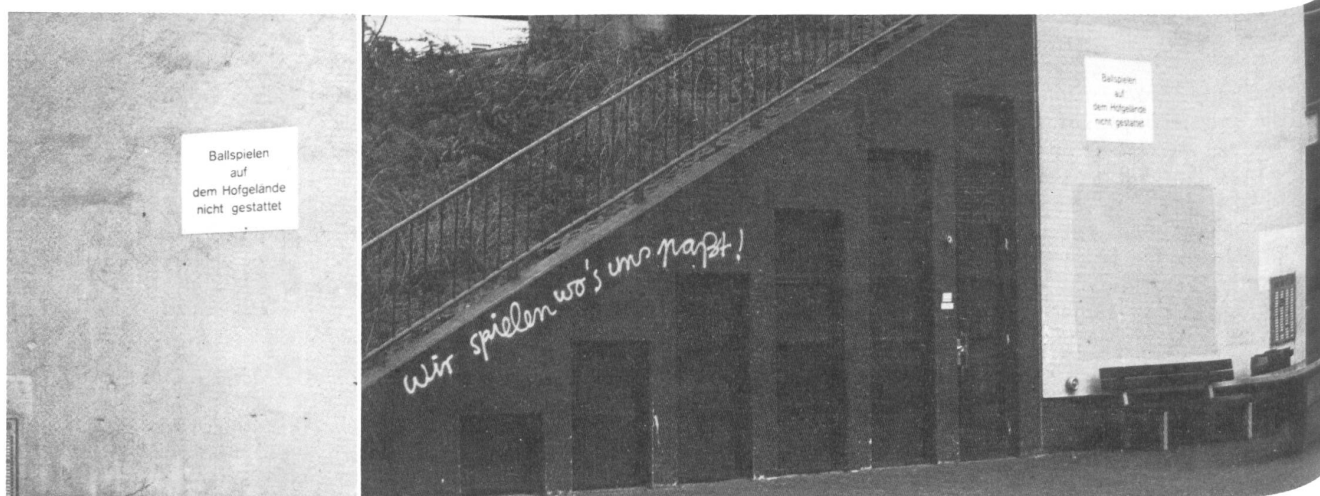 Ballspielen
auf
dem Hofgelände
nicht gestattet
wir spielen wo's uns paßt!
Ballspielen
auf
dem Hofgelände
nicht gestattet